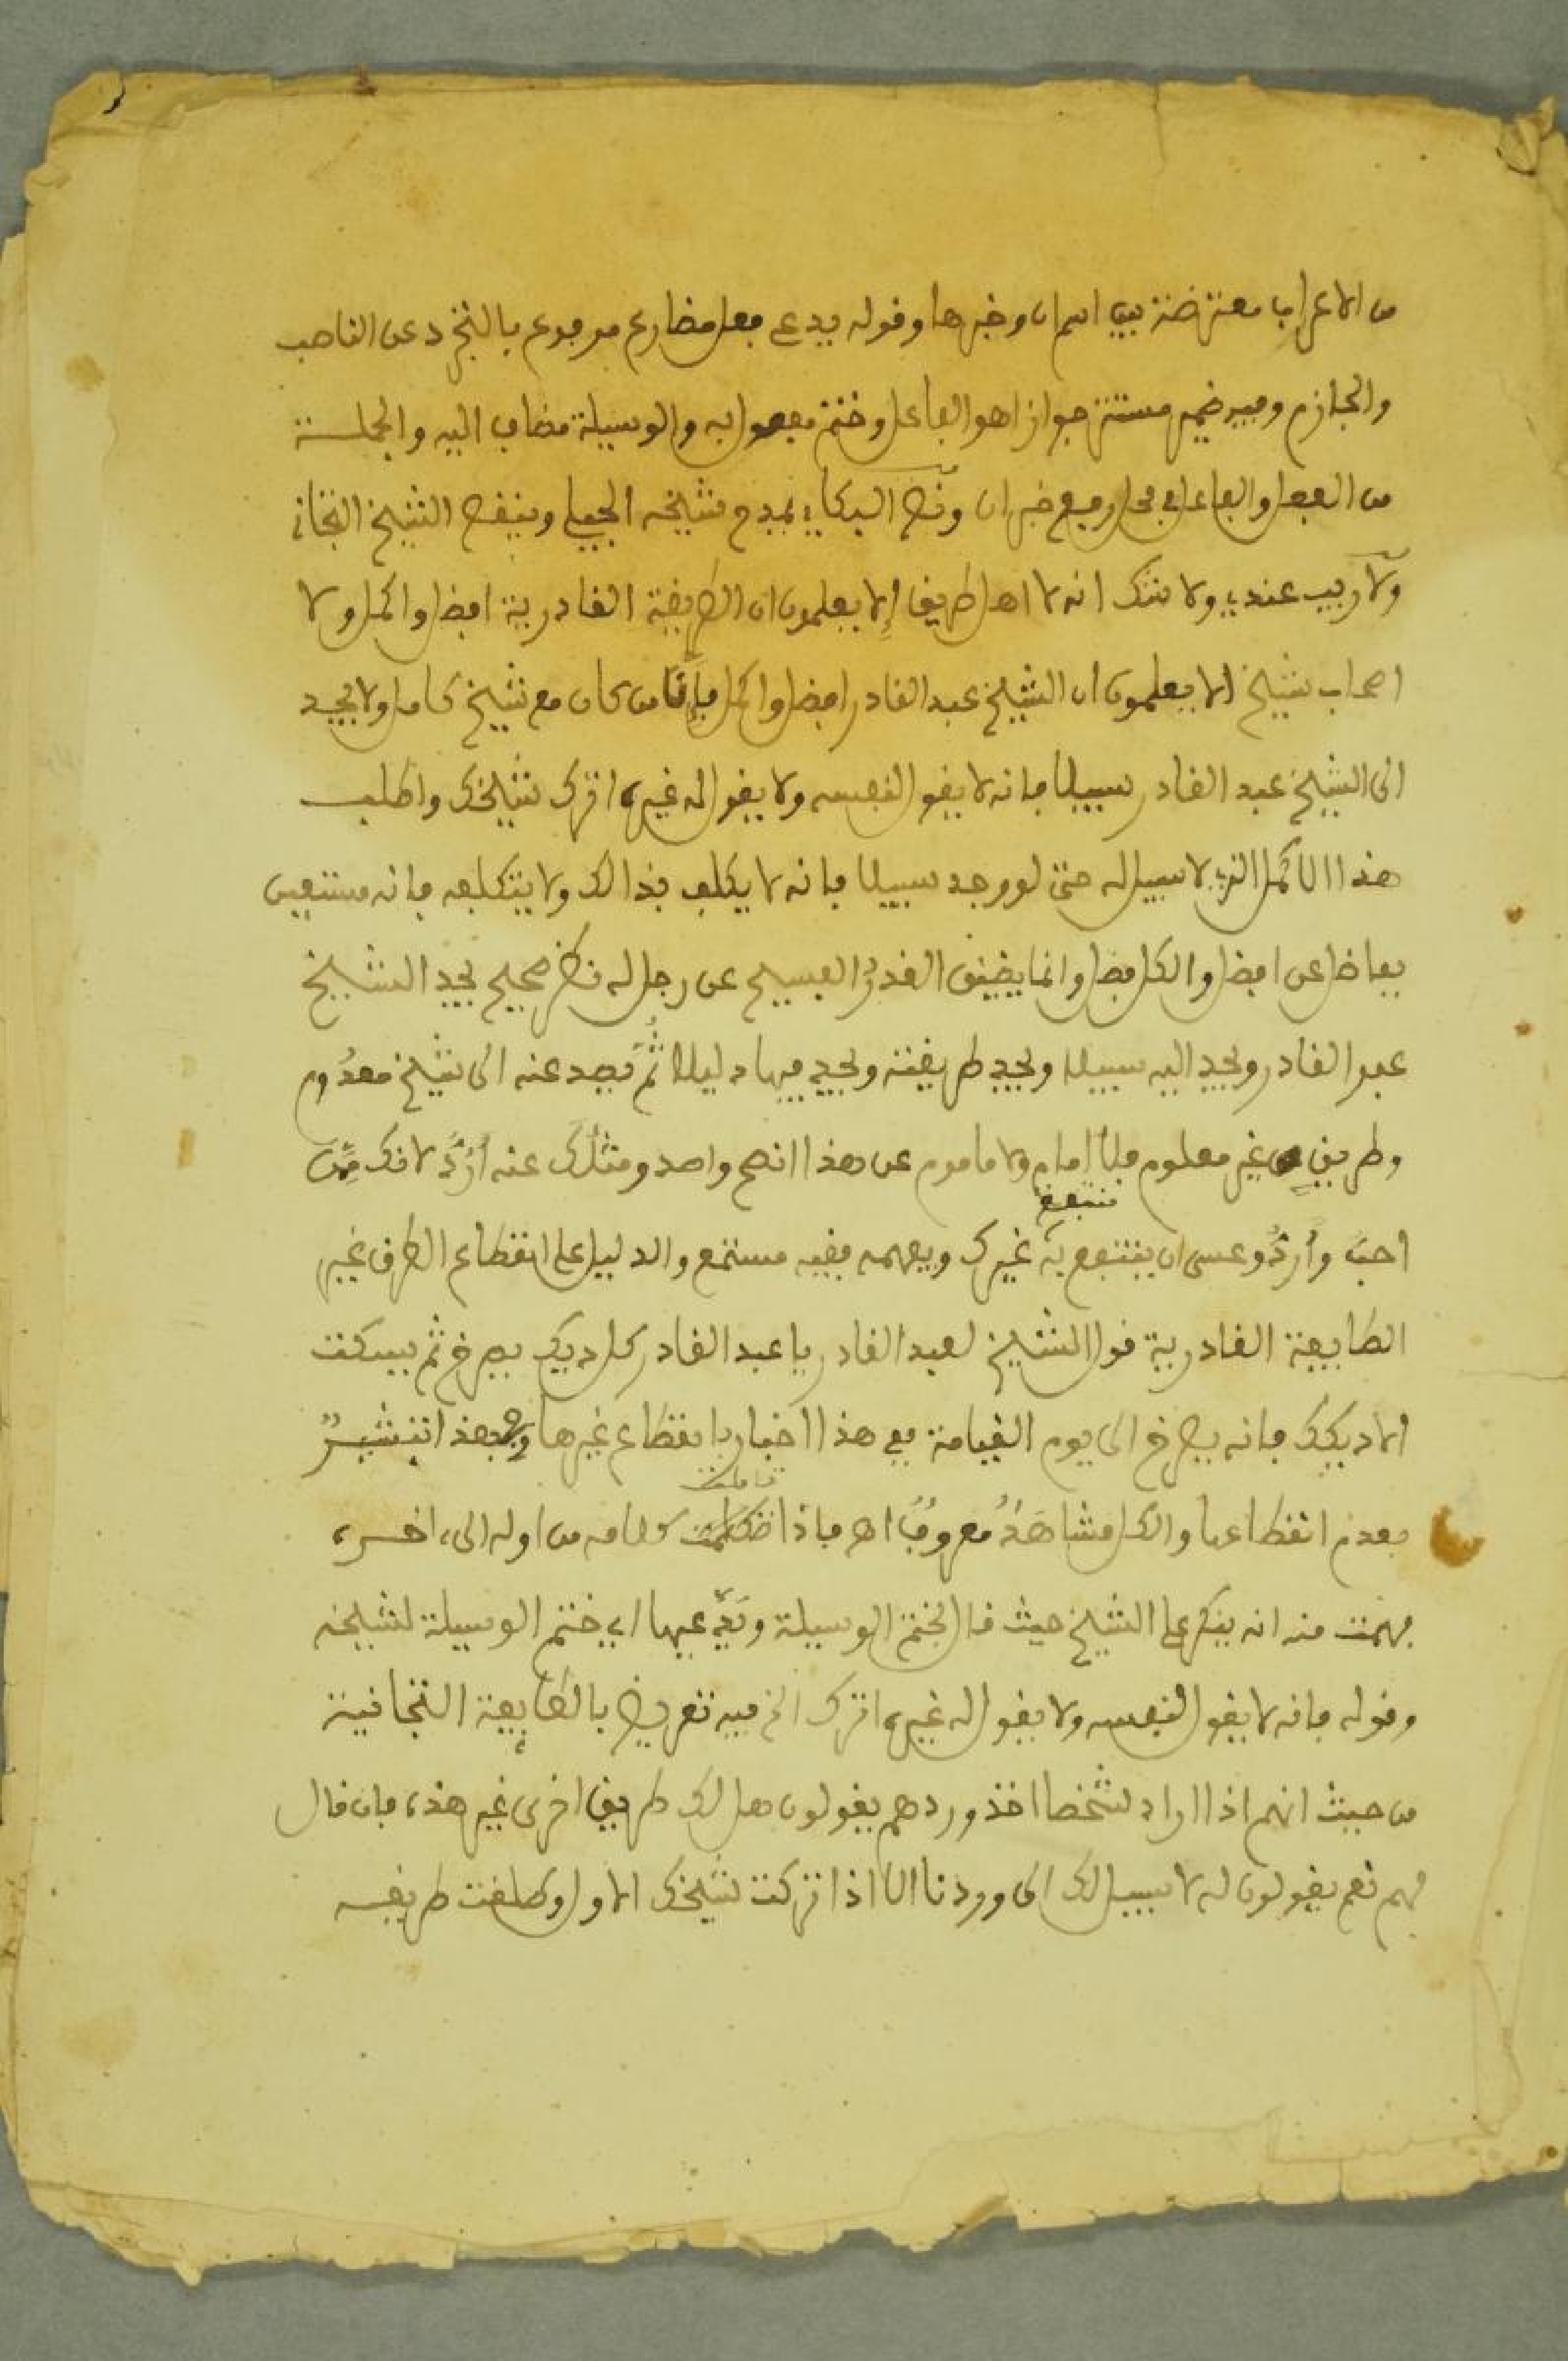 من الاعراب معترضة بين اسم ان وخبرها وقوله يدعى فعل مضارع مرفوع بالتجرد عن الناصب
والجازم وفيه ضمير مستتر جوازا هو الفاعل وختم مفعول به والوسيلة مضاف اليه والجملة
من الفعل والفاعل في محل رفع خبر ان ونص البكاي يمدح شيخه الجيلي وينقص الشيخ التجاني
ولا ريب عندي ولا شك انه لا اهل طريق إلا يعلمون ان الطريقة القادرية افضل واكمل ولا
اصحاب شيخ الا يعلمون ان الشيخ عبد القادر افضل واكمل فإن من كان مع شيخ كامل ولا يجد
الى الشيخ عبد القادر سبيلا فانه لا يقول لنفسه ولا يقول له غيره اترك شيخك واطلب
هذا الاكمل الذي لا سبيل له حتى لو وجد سبيلا فانه لا يكلف بذالك ولا يتكلفه فانه مستغن
بفاضل عن افضل والكل فضل وانما يضيق القدر الفسيح عن رجل له نظر صحيح يجد الشيخ
عبد القادر ويجد اليه سبيلا ويجد طريقته ويجد فيها دليلا ثُمَّ يصد عنه الى شيخ معدُوم
وطريق غير معلوم فلا إمام ولا ماموم عن هذا انصح واصد ومثلك عنه أرُدُّ لانك مِمَّن
احبّ وأردُّ وعسى ان ينتفع به غيرك ويفهمه فقيه مستمع والدليل على انقطاع الطرق غير
منتفع
الطايفة القادرية قول الشيخ لعبد القادر يا عبد القادر كل ديك يصرخ ثم يسكت
الا ديكك فانه يصرخ الى يوم القيامة ففي هذا اخبار بانقطاع غيرها وفي هذا تبشيرٌ
بعدم انقطاعها والكل مشاهَدٌ معروفٌ اهـ فاذا تاملت كلامه من اوله الى اخره
فهمت منه انه ينكر على الشيخ حيث قال ختم الوسيلة ويدّعيها اي ختم الوسيلة لشيخه
وقوله فانه لا يقول لنفسه ولا يقول له غيره اترك الخ فيه تعريض بالطايفة التجانية
من حيث انهم اذا اراد شخصا اخذ وردهم يقولون هل لك طريق اخرى غير هذه فان قال
لهم نعم يقولون له لا سبيل لك الى وردنا الا اذا تركت شيخك الاول وطلقت طريقه